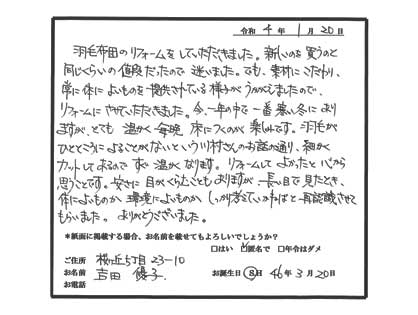 令和 4 年 1 月 20 日
羽毛布団のリフォームをしていただきました。新しいのを買うのと
同じくらいの値段だったので迷いました。でも、素材にこだわり、
常に体によいものを提供されている様子がうかがえましたので、
リフォームにさせていただきました。今、一年の中で一番寒い冬になり
ますが、とても温かく毎晩床につくのが楽しみです。羽毛が
ひとところによることがないという川村さんのお話の通り、細かく
カットしてあるのですぐ温かくなります。リフォームしてよかったと心から
思うことです。安さに目がくらむこともありますが、長い目で見たとき、
体によいものか、環境によいものか、しっかり考えていかねばと再認識させて
もらいました。ありがとうございました。
*紙面に掲載する場合、お名前を載せてもよろしいでしょうか?
□はい ☑匿名で □年令はダメ
ご住所 桜ヶ丘5丁目23-10
お名前 吉田 優子 お誕生日 S H 46年3月20日
お電話